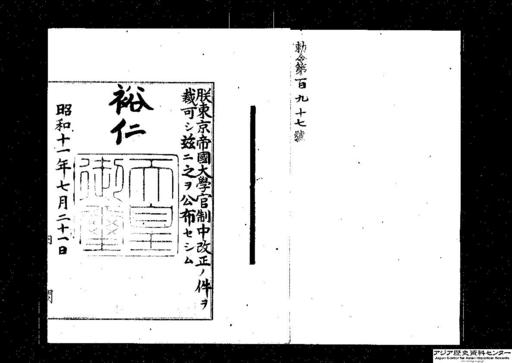 勅令第百九十七號
朕東京帝國大學官制中改正ノ件ヲ
裁可シ茲ニ之ヲ公布セシム
裕仁
天皇
御璽
昭和十一年七月二十一日
アジア歴史資料センター
Japan Center for Asian Historical Records